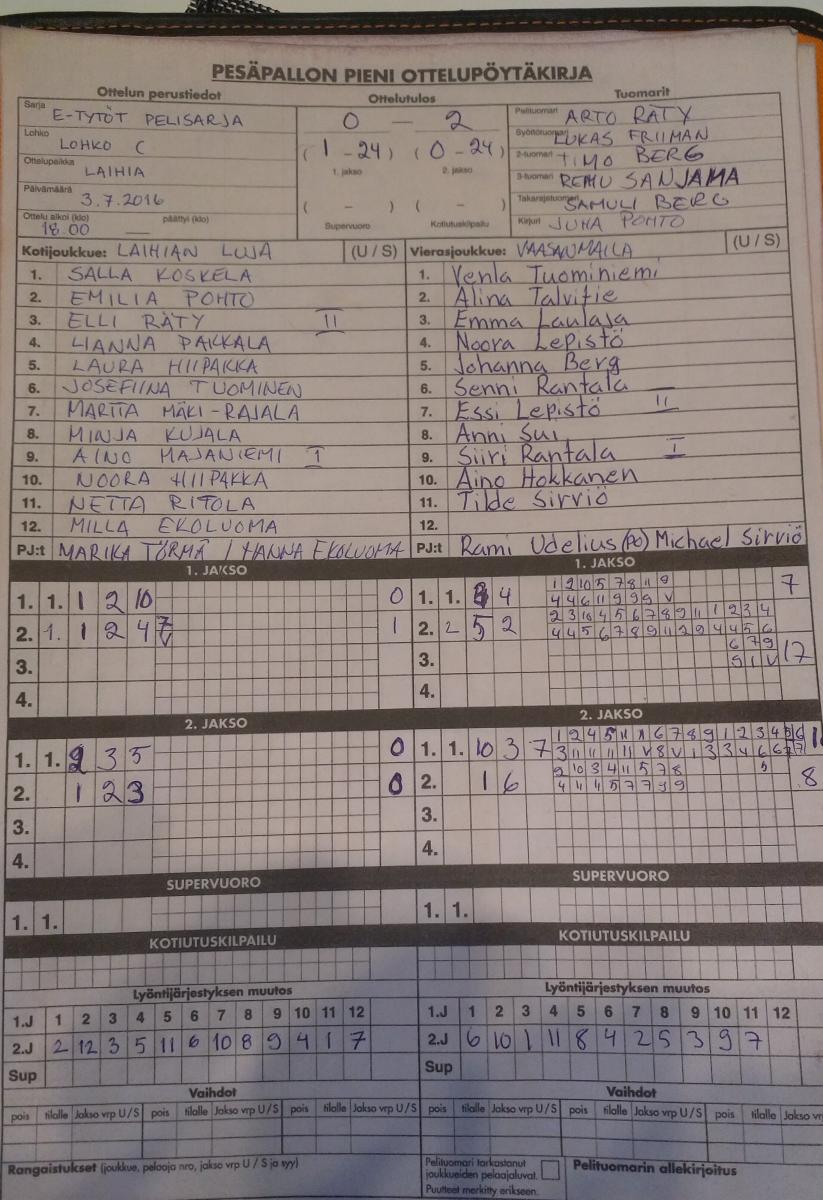 PESÄPALLON PIENI OTTELUPÖYTÄKIRJA
Ottelun perustiedot
Ottelutulos
Tuomarit
Sarja E-TYTÖT PELISARJA
Lohko LOHKO C
Ottelupaikka LAIHIA
Päivämäärä 3.7.2016
Ottelu alkoi (klo) päättyi (klo)
18.00 —
0 — 2
(1 - 24) (0 - 24)
1. jakso 2. jakso
( - ) ( - )
Supervuoro Kotiutuskilpailu
Pelituomari ARTO RÄTY
Syöttötuomari LUKAS FRIIMAN
2-tuomari TIMO BERG
3-tuomari REMU SANJAMA
Takarajatuomari SAMULI BERG
Kirjuri JUHA POHTO
Kotijoukkue: LAIHIAN LUJA (U / S)
1. SALLA KOSKELA
2. EMILIA POHTO
3. ELLI RÄTY II
4. LIANNA PAKKALA
5. LAURA HIIPAKKA
6. JOSEFIINA TUOMINEN
7. MARTTA MÄKI-RAJALA
8. MINJA KUJALA
9. AINO MAJANIEMI I
10. NOORA HIIPAKKA
11. NETTA RITOLA
12. MILLA EKOLUOMA
PJ:t MARIKA TÖRMÄ / HANNA EKOLUOMA
Vierasjoukkue: VAASANMAILA (U / S)
1. Venla Tuominiemi
2. Alina Talvitie
3. Emma Laulaja
4. Noora Lepistö
5. Johanna Berg
6. Senni Rantala
7. Essi Lepistö II
8. Anni Sui
9. Siiri Rantala I
10. Aino Hokkanen
11. Tilde Sirviö
12.
PJ:t Rami Udelius (po) Michael Sirviö
1. JAKSO
1. 1. 1 2 10 0
2. 1. 1 2 4 7 1
V
3.
4.
1. JAKSO
1. 1. 4 7
1 2 10 5 7 8 11 9
4 4 6 11 9 9 9 V
2. 2 5 2
2 3 10 4 5 6 7 8 9 11 1 2 3 4
4 4 5 6 7 8 9 11 2 9 4 4 5 6
3. 6 7 9 17
9 1 V
4.
2. JAKSO
1. 1. 2 3 5 0
2. 1 2 3 0
3.
4.
2. JAKSO
1. 1. 10 3 7
1 2 4 5 11 6 7 8 9 1 2 3 4 5 6
3 11 11 11 11 V 8 V 1 3 3 4 6 6 7 7
2. 1 6 8
2 10 3 4 11 5 7 8 5
4 11 4 5 7 7 9 9
3.
4.
SUPERVUORO
1. 1.
SUPERVUORO
1. 1.
KOTIUTUSKILPAILU
KOTIUTUSKILPAILU
Lyöntijärjestyksen muutos
1.J 1 2 3 4 5 6 7 8 9 10 11 12
2.J 2 12 3 5 11 6 10 8 9 4 1 7
Sup
Lyöntijärjestyksen muutos
1.J 1 2 3 4 5 6 7 8 9 10 11 12
2.J 6 10 1 11 8 4 2 5 3 9 7
Sup
Vaihdot
pois tilalle Jakso vrp U / S pois tilalle Jakso vrp U / S pois tilalle Jakso vrp U / S
Vaihdot
pois tilalle Jakso vrp U / S pois tilalle Jakso vrp U / S pois tilalle Jakso vr
Rangaistukset (joukkue, pelaaja nro, jakso vrp U / S ja syy)
Pelituomari tarkastanut
joukkueiden pelaajaluvat.
Puutteet merkitty erikseen.
Pelituomarin allekirjoitus